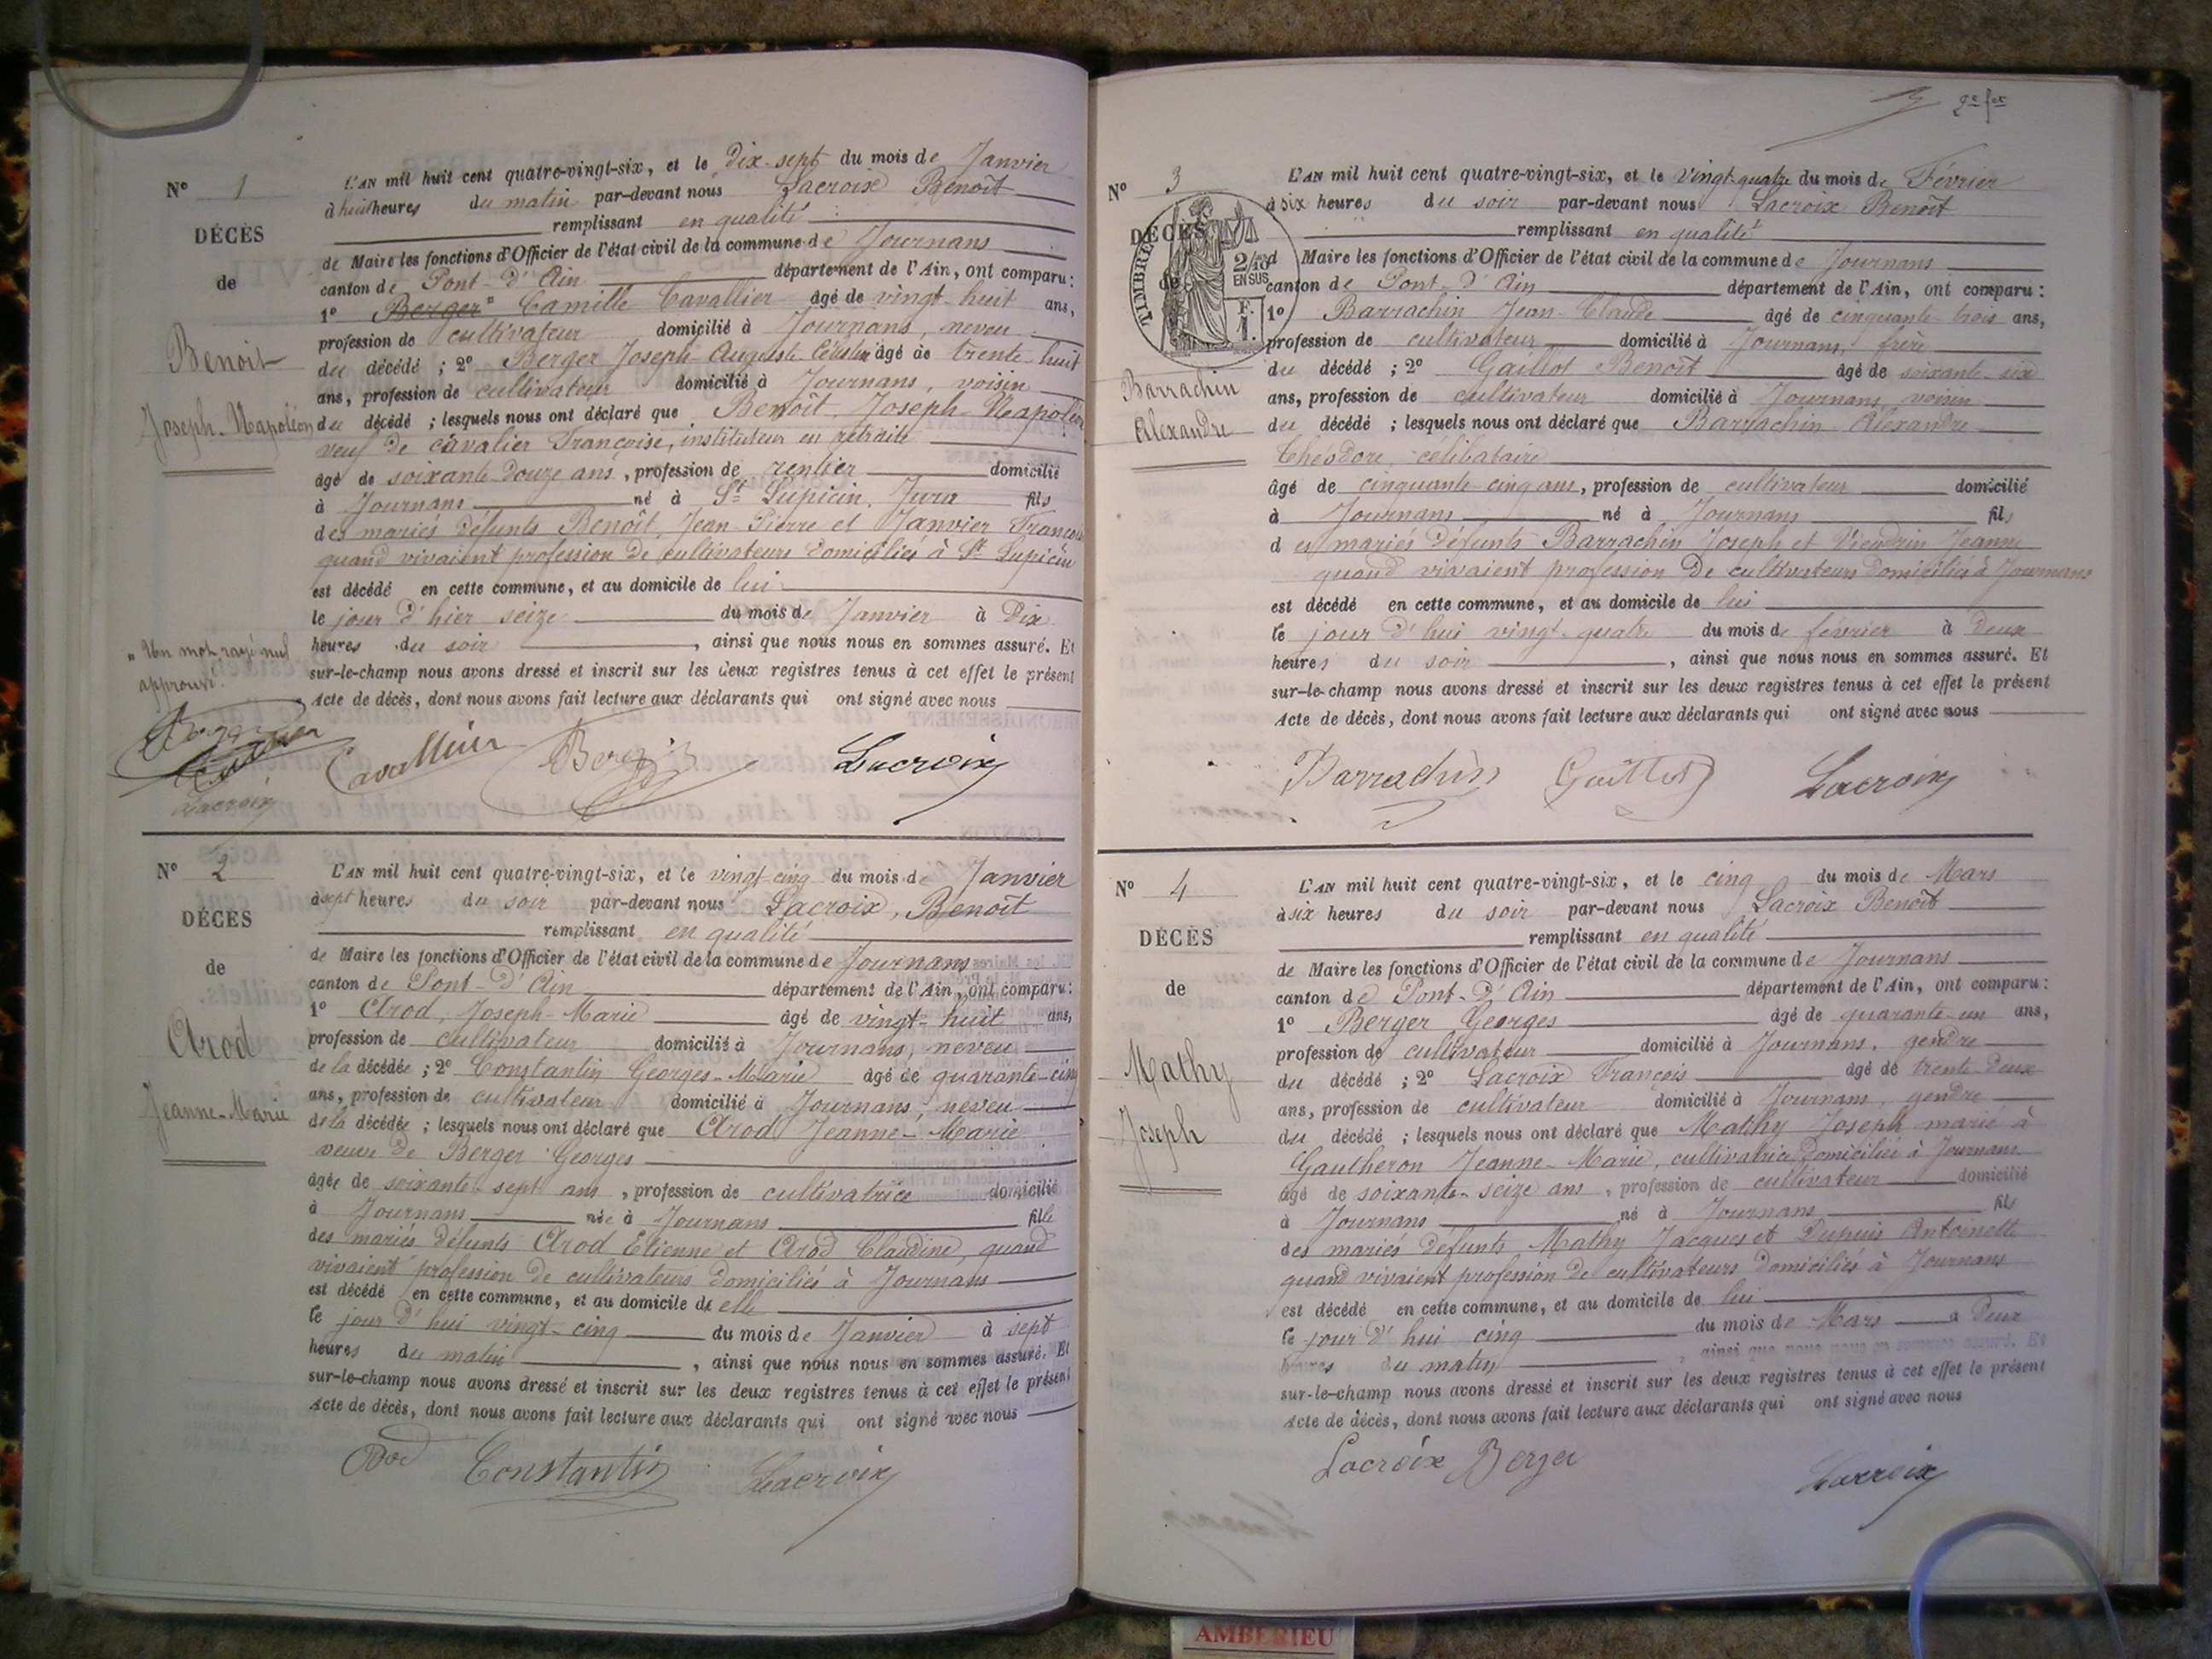 N° 1
DÉCÈS
de
Benoit
Joseph-Napoléon
L'AN mil huit cent quatre-vingt-six, et le Dix-sept du mois de Janvier
à huit heures du matin par-devant nous Lacroix Benoît
remplissant en qualité
de Maire les fonctions d'Officier de l'état civil de la commune de Journans
canton de Pont-d'Ain département de l'Ain, ont comparu :
1° Berger" Camille Cavallier âgé de vingt-huit ans,
profession de cultivateur domicilié à Journans, neveu
du décédé ; 2° Berger Joseph-Auguste âgé de trente-huit
ans, profession de cultivateur domicilié à Journans, voisin
du décédé ; lesquels nous ont déclaré que Benoît Joseph-Napoléon
veuf de Cavalier Françoise, instituteur en retraite
âgé de soixante-douze ans, profession de rentier domicilié
à Journans né à St Lupicin, Jura fils
des mariés défunts Benoît, Jean-Pierre et Janvier
quand vivaient profession de cultivateurs domiciliés à St Lupicin
est décédé en cette commune, et au domicile de lui
le jour d'hier seize du mois de Janvier à Dix
heures du soir, ainsi que nous nous en sommes assuré. Et
sur-le-champ nous avons dressé et inscrit sur les deux registres tenus à cet effet le présent
Acte de décès, dont nous avons fait lecture aux déclarants qui ont signé avec nous
" Un mot rayé nul
approuvé.
Cavallier Berger Lacroix
Lacroix
N° 2
DÉCÈS
de
Arod
Jeanne-Marie
L'AN mil huit cent quatre-vingt-six, et le vingt-cinq du mois de Janvier
à sept heures du soir par-devant nous Lacroix, Benoît
remplissant en qualité
de Maire les fonctions d'Officier de l'état civil de la commune de Journans
canton de Pont-d'Ain département de l'Ain, ont comparu :
1° Arod, Joseph-Marie âgé de vingt-huit ans,
profession de cultivateur domicilié à Journans, neveu
de la décédée ; 2° Constantin Georges-Marie âgé de quarante-cinq
ans, profession de cultivateur domicilié à Journans, neveu
de la décédée ; lesquels nous ont déclaré que Arod Jeanne-Marie
veuve de Berger Georges
âgée de soixante-sept ans, profession de cultivatrice domicilié
à Journans née à Journans fille
des mariés défunts Arod Etienne et Arod Claudine, quand
vivaient profession de cultivateurs domiciliés à Journans
est décédé en cette commune, et au domicile de elle
le jour d'hui vingt-cinq du mois de Janvier à sept
heures du matin, ainsi que nous nous en sommes assuré. Et
sur-le-champ nous avons dressé et inscrit sur les deux registres tenus à cet effet le présent
Acte de décès, dont nous avons fait lecture aux déclarants qui ont signé avec nous
Arod Constantin Lacroix
3 2e fet
N° 3
DÉCÈS
de
TIMBRE
2/10
EN SUS
F.
1.
Barrachin
Alexandre
L'AN mil huit cent quatre-vingt-six, et le vingt-quatre du mois de Février
à six heures du soir par-devant nous Lacroix Benoît
remplissant en qualité
d Maire les fonctions d'Officier de l'état civil de la commune de Journans
canton de Pont-d'Ain département de l'Ain, ont comparu :
1° Barrachin Jean-Claude âgé de cinquante-trois ans,
profession de cultivateur domicilié à Journans, frère
du décédé ; 2° Gaillot Benoît âgé de soixante-six
ans, profession de cultivateur domicilié à Journans, voisin
du décédé ; lesquels nous ont déclaré que Barrachin Alexandre
Théodore, célibataire
âgé de cinquante-cinq ans, profession de cultivateur domicilié
à Journans né à Journans fils
des mariés défunts Barrachin Joseph et Jeanne
quand vivaient profession de cultivateurs domiciliés à Journans
est décédé en cette commune, et au domicile de lui
le jour d'hui vingt-quatre du mois de février à Deux
heures du soir, ainsi que nous nous en sommes assuré. Et
sur-le-champ nous avons dressé et inscrit sur les deux registres tenus à cet effet le présent
Acte de décès, dont nous avons fait lecture aux déclarants qui ont signé avec nous
Barrachin Gaillot Lacroix
N° 4
DÉCÈS
de
Mathy
Joseph
L'AN mil huit cent quatre-vingt-six, et le cinq du mois de Mars
à six heures du soir par-devant nous Lacroix Benoît
remplissant en qualité
de Maire les fonctions d'Officier de l'état civil de la commune de Journans
canton de Pont-d'Ain département de l'Ain, ont comparu :
1° Berger Georges âgé de quarante-un ans,
profession de cultivateur domicilié à Journans, gendre
du décédé ; 2° Lacroix François âgé de trente-deux
ans, profession de cultivateur domicilié à Journans, gendre
du décédé ; lesquels nous ont déclaré que Mathy Joseph marié à
Gautheron Jeanne-Marie, cultivatrice domiciliée à Journans
âgé de soixante-seize ans, profession de cultivateur domicilié
à Journans né à Journans fils
des mariés défunts Mathy Jacques et Dupuis Antoinette
quand vivaient profession de cultivateurs domiciliés à Journans
est décédé en cette commune, et au domicile de lui
le jour d'hui cinq du mois de Mars à Deux
heures du matin, ainsi que nous nous en sommes assuré. Et
sur-le-champ nous avons dressé et inscrit sur les deux registres tenus à cet effet le présent
Acte de décès, dont nous avons fait lecture aux déclarants qui ont signé avec nous
Lacroix Berger Lacroix
AMBERIEU